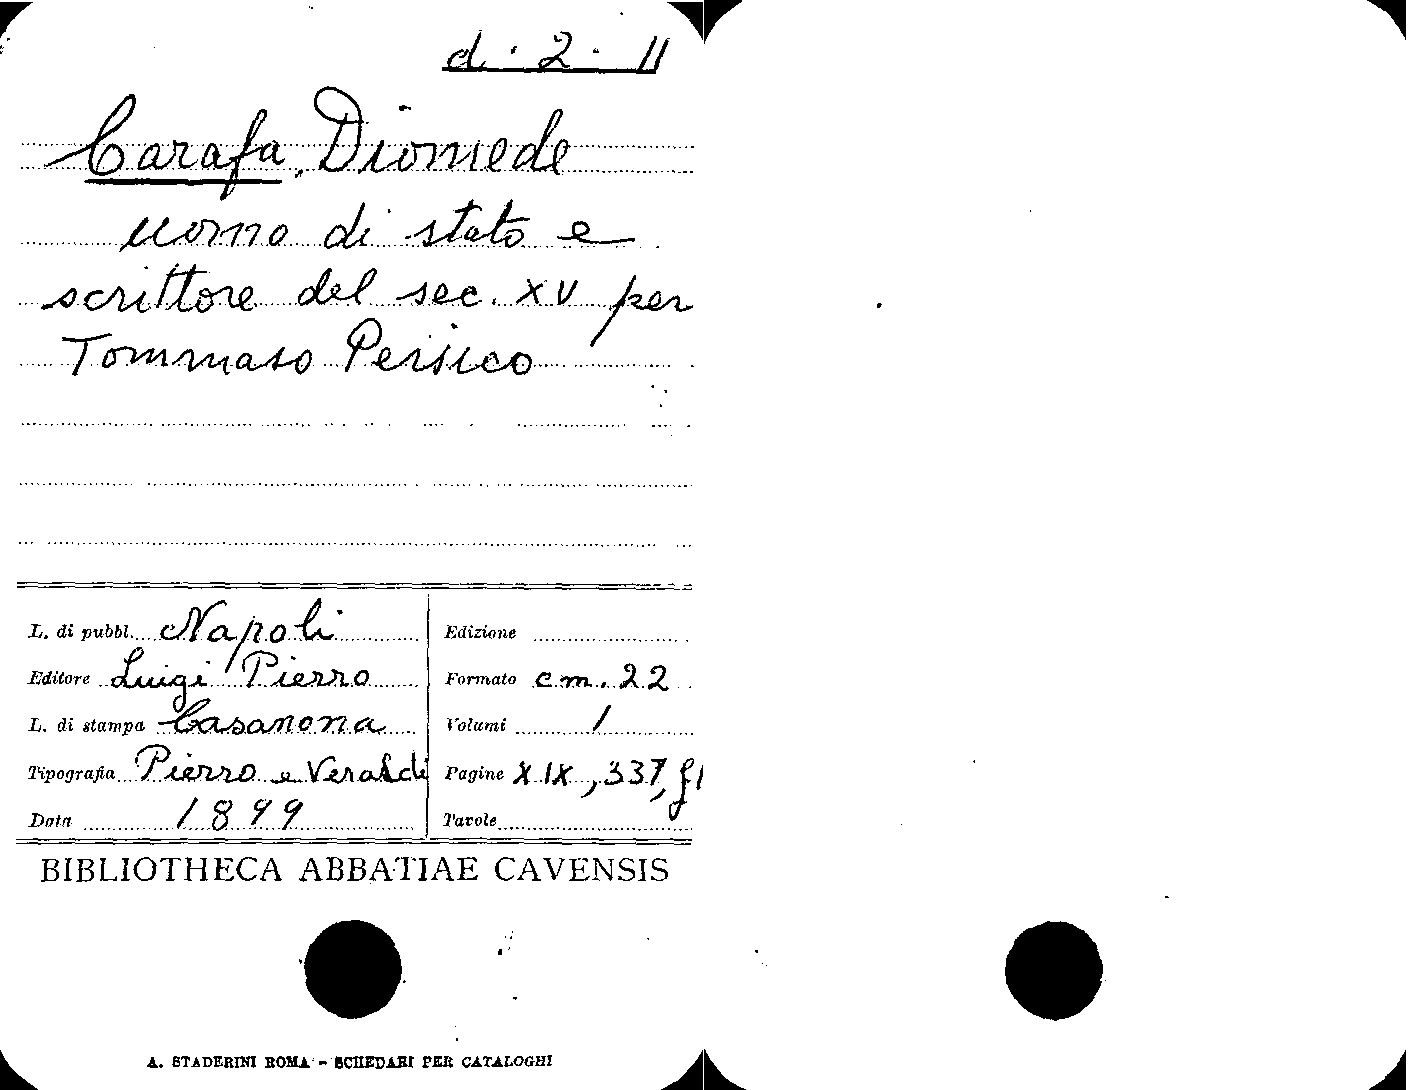 d. 2. 11
Carafa, Diomede
uomo di stato e
scrittore del sec. XV per
Tommaso Persico
L. di pubbl. Napoli
Editore Luigi Pierro
L. di stampa Casanona
Tipografia Pierro e Veraldi
Data 1899
Edizione
Formato cm. 22
Volumi 1
Pagine XIX, 337,
Tavole
BIBLIOTHECA ABBATIAE CAVENSIS
A. STADERINI ROMA - SCHEDARI PER CATALOGHI